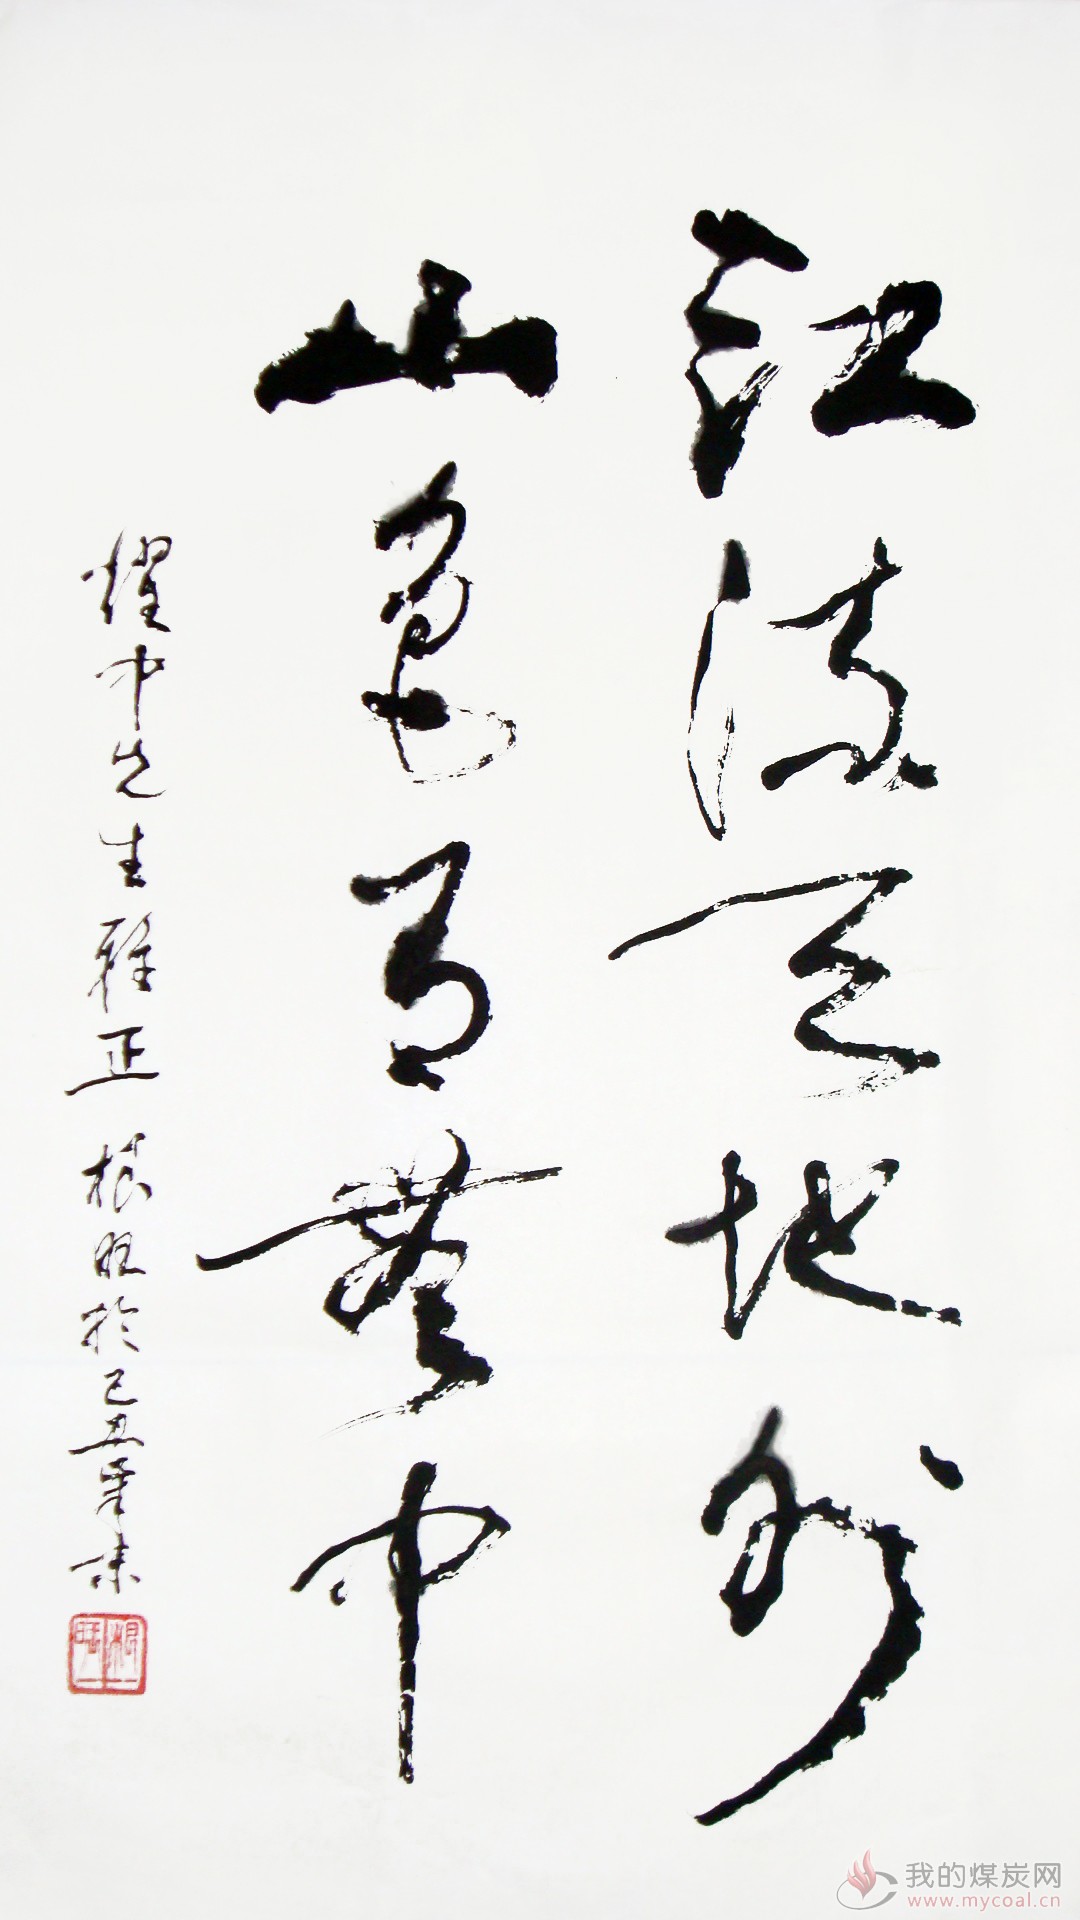 江流天地外
山色有無中
耀中先生雅正 根旺於己丑年末
根旺
我的煤炭网
www.mycoal.cn